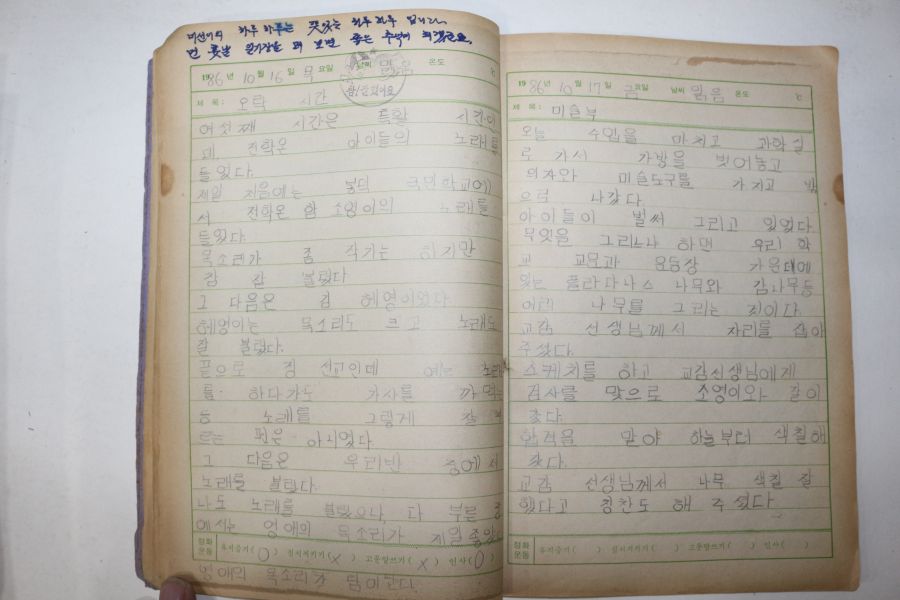 미선이의 하루하루는 뜻있는 하루하루 입니다.
먼 훗날 일기장을 펴 보면 좋은 추억이 되겠군요.
1986년 10월 16일 목요일 날씨 맑음 온도 ℃
제목: 오락 시간
참! 잘했어요
여섯째 시간은 특활 시간인
데, 전학온 아이들의 노래를
들었다.
제일 처음에는 국민학교에
서 전학온 함 소영이의 노래를
들었다.
목소리가 좀 작기는 하지만
잘 불렀다
그 다음은 김 혜영이었다.
혜영이는 목소리도 크고 노래도
잘 불렀다.
끝으로 정 선교인데 얘는 노래
를 하다가도 가사를 까먹는
등 노래를 그렇게 잘 부
르는 편은 아니었다.
그 다음은 우리반 중에서
노래를 불렀다.
나도 노래를 불렀으나, 다 부른 중
에서는 영애의 목소리가 제일 좋았다
정화운동 우지줄기( O ) 질서지키기( X ) 고운말쓰기( X ) 인사( O )
영애의 목소리가
1986년 10월 17일 금요일 날씨 맑음 온도 ℃
제목: 미술부
오늘 수업을 마치고 과학실
로 가서 가방을 벗어놓고
의자와 미술도구를 가지고 밖
으로 나갔다.
아이들이 벌써 그리고 있었다.
무엇을 그리느냐 하면 우리 학
교 교문과 운동장 가운데에
있는 플라다나스 나무와 감나무등
여러 나무를 그리는 것이다.
교감 선생님께서 자리를 잡아
주셨다.
스케치를 하고 교감선생님에게
검사를 맞으로 소영이와 같이
갔다.
합격을 맡아 하늘부터 색칠해
갔다.
교감 선생님께서 나무 색칠 잘
했다고 칭찬도 해 주셨다.
정화운동 우지줄기( ) 질서지키기( ) 고운말쓰기( ) 인사( )